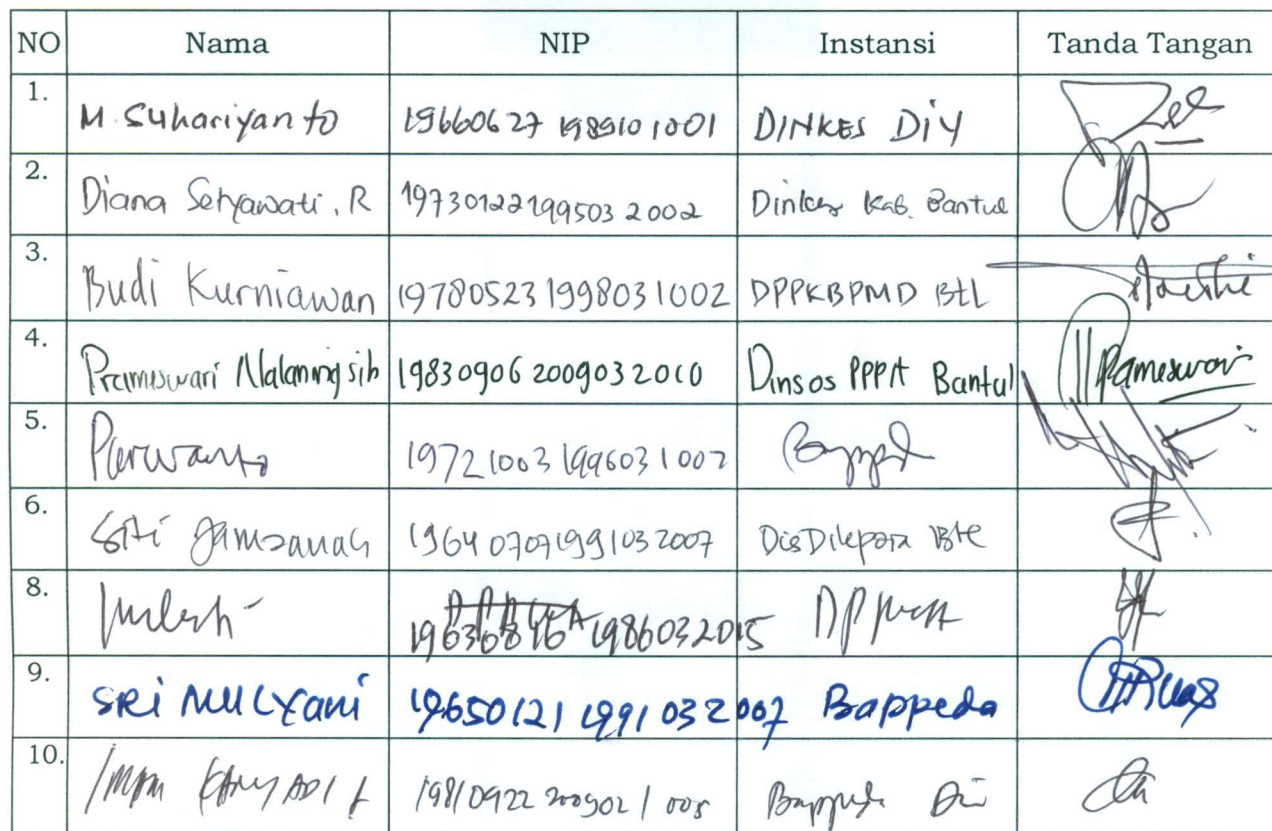 NO Nama NIP Instansi Tanda Tangan
1. M. Suhariyanto 19660627 198910 1001 DINKES DIY
2. Diana Setyawati. R 19730122199503 2002 Dinkes Kab. Bantul
3. Budi Kurniawan 19780523 1998031002 DPPKBPMD Btl
4. Prameswari Nalaningsih 19830906 2009032010 Dinsos PPPA Bantul Prameswari
5. Purwanto 19721003 1996031002 Bappeda
6. Siti Jamzanah 19640707199103 2007
8. 1986032015
9. SRi MULYani 19650121 1991 03 2 007 Bappeda
10. 19810922 200902 1 005 Bappeda